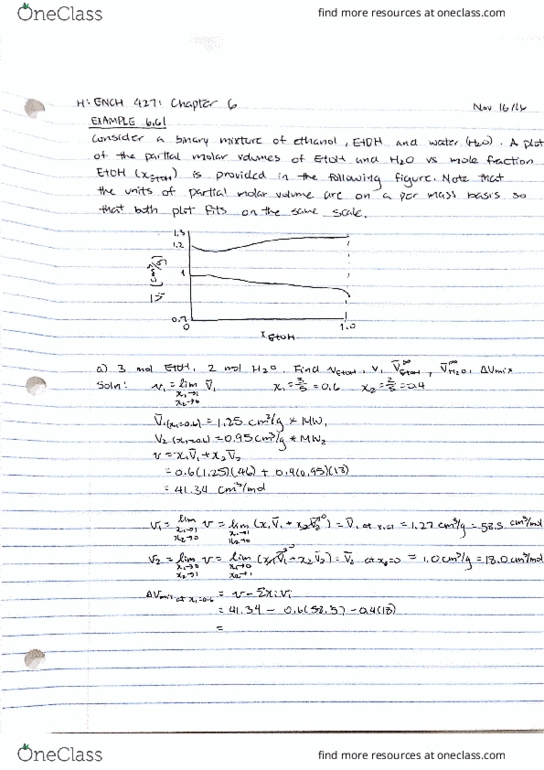 OneClass
find more resources at oneclass.com
H: ENCH 427: Chapter 6
Nov 16/16
EXAMPLE 6.6!
Consider a binary mixture of ethanol, EtOH and water (H₂O). A plot
of the partial molar volumes of EtOH and H₂O vs mole fraction
EtOH (x_EtOH) is provided in the following figure. Note that
the units of partial molar volume are on a per mass basis so
that both plot fits on the same scale.
1.3
1.2
1
0.7
V̄i [cm³/g]
0
1.0
x EtOH
a) 3 mol EtOH, 2 mol H₂O. Find V_EtOH, v, V̄^∞_EtOH, V̄^∞_H₂O, ΔVmix
Soln: v₁ = lim V̄₁ x₁ = 3/5 = 0.6 x₂ = 2/5 = 0.4
x₁→1
x₂→0
V̄₁(x₁=0.6) = 1.25 cm³/g * MW₁
V̄₂(x₁=0.6) = 0.95 cm³/g * MW₂
v = x₁V̄₁ + x₂V̄₂
= 0.6(1.25)(46) + 0.4(0.95)(18)
= 41.34 cm³/mol
v₁ = lim v = lim (x₁V̄₁ + x₂V̄₂) = V̄₁ at x₁=1 = 1.27 cm³/g = 58.5 cm³/mol
x₁→1 x₁→1
x₂→0 x₂→0
v₂ = lim v = lim (x₁V̄₁ + x₂V̄₂) = V̄₂ at x₁=0 = 1.0 cm³/g = 18.0 cm³/mol
x₁→0 x₁→0
x₂→1 x₂→1
ΔVmix at x₁=0.6 = v - Σxivi
= 41.34 - 0.6(58.5) - 0.4(18)
=
OneClass
find more resources at oneclass.com